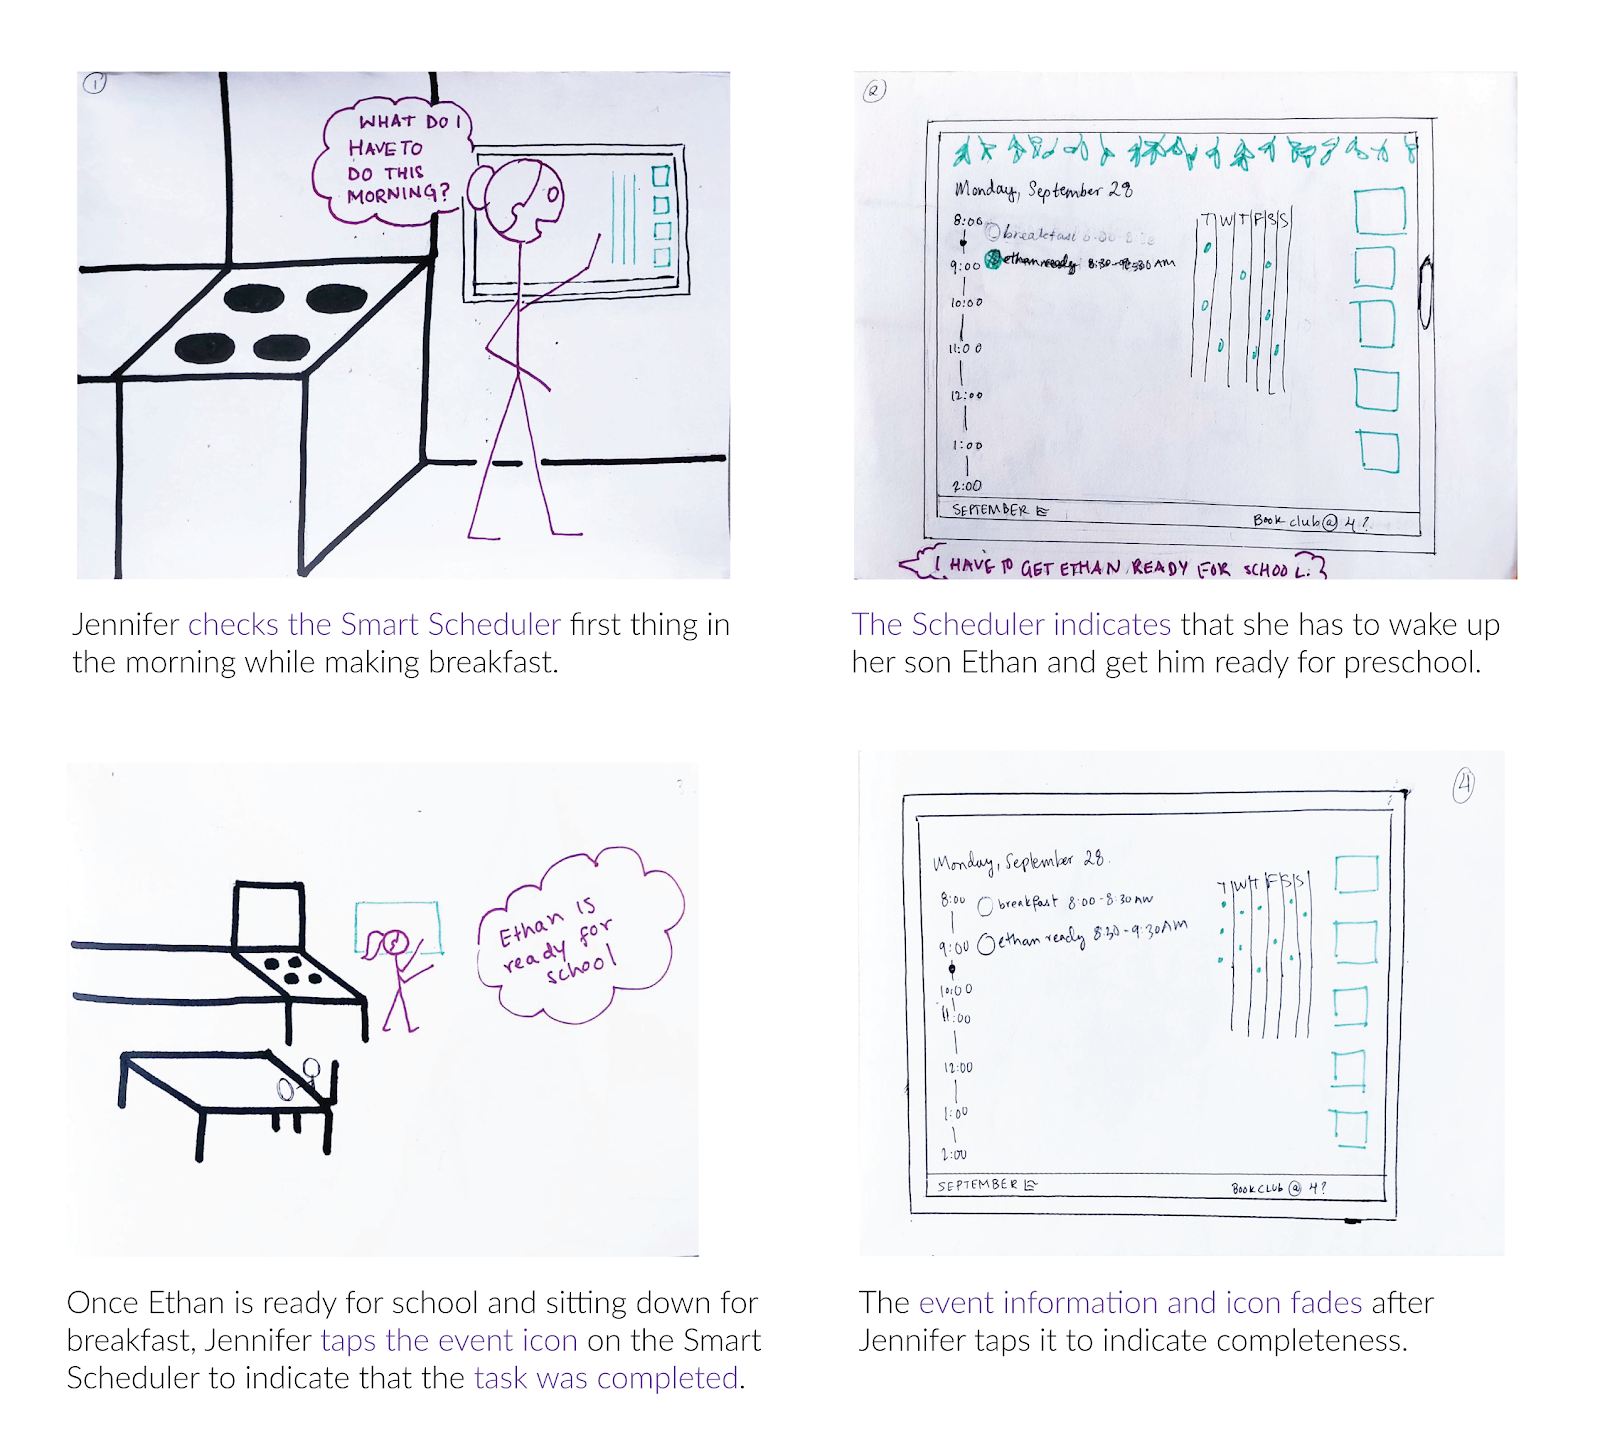 1
WHAT DO I
HAVE TO
DO THIS
MORNING?
Jennifer checks the Smart Scheduler first thing in
the morning while making breakfast.
2
Monday, September 28
8:00
breakfast 8:00-8:30
ethan ready 8:30-9:30 AM
9:00
10:00
11:00
12:00
1:00
2:00
T W T F S S
SEPTEMBER
Book club @ 4?
I HAVE TO GET ETHAN READY FOR SCHOOL.
The Scheduler indicates that she has to wake up
her son Ethan and get him ready for preschool.
3
Ethan is
ready for
school
Once Ethan is ready for school and sitting down for
breakfast, Jennifer taps the event icon on the Smart
Scheduler to indicate that the task was completed.
4
Monday, September 28.
8:00 breakfast 8:00-8:30 AM
9:00 ethan ready 8:30-9:30AM
10:00
11:00
12:00
1:00
2:00
T W T F S S
SEPTEMBER
BOOK CLUB @ 4?
The event information and icon fades after
Jennifer taps it to indicate completeness.